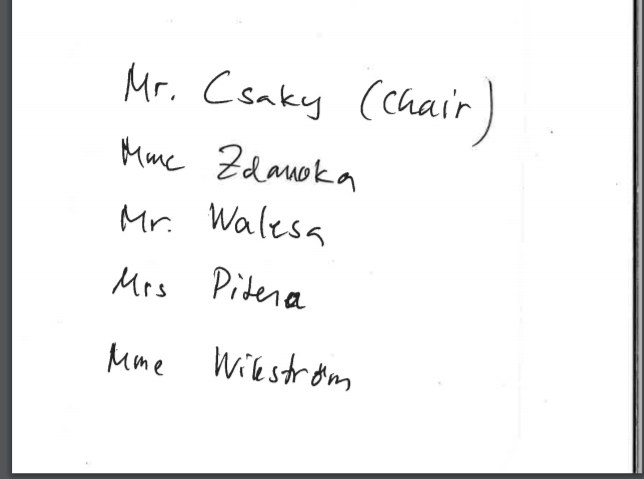 Mr. Csaky (Chair)
Mme Zdanoka
Mr. Walesa
Mrs Pitera
Mme Wikström